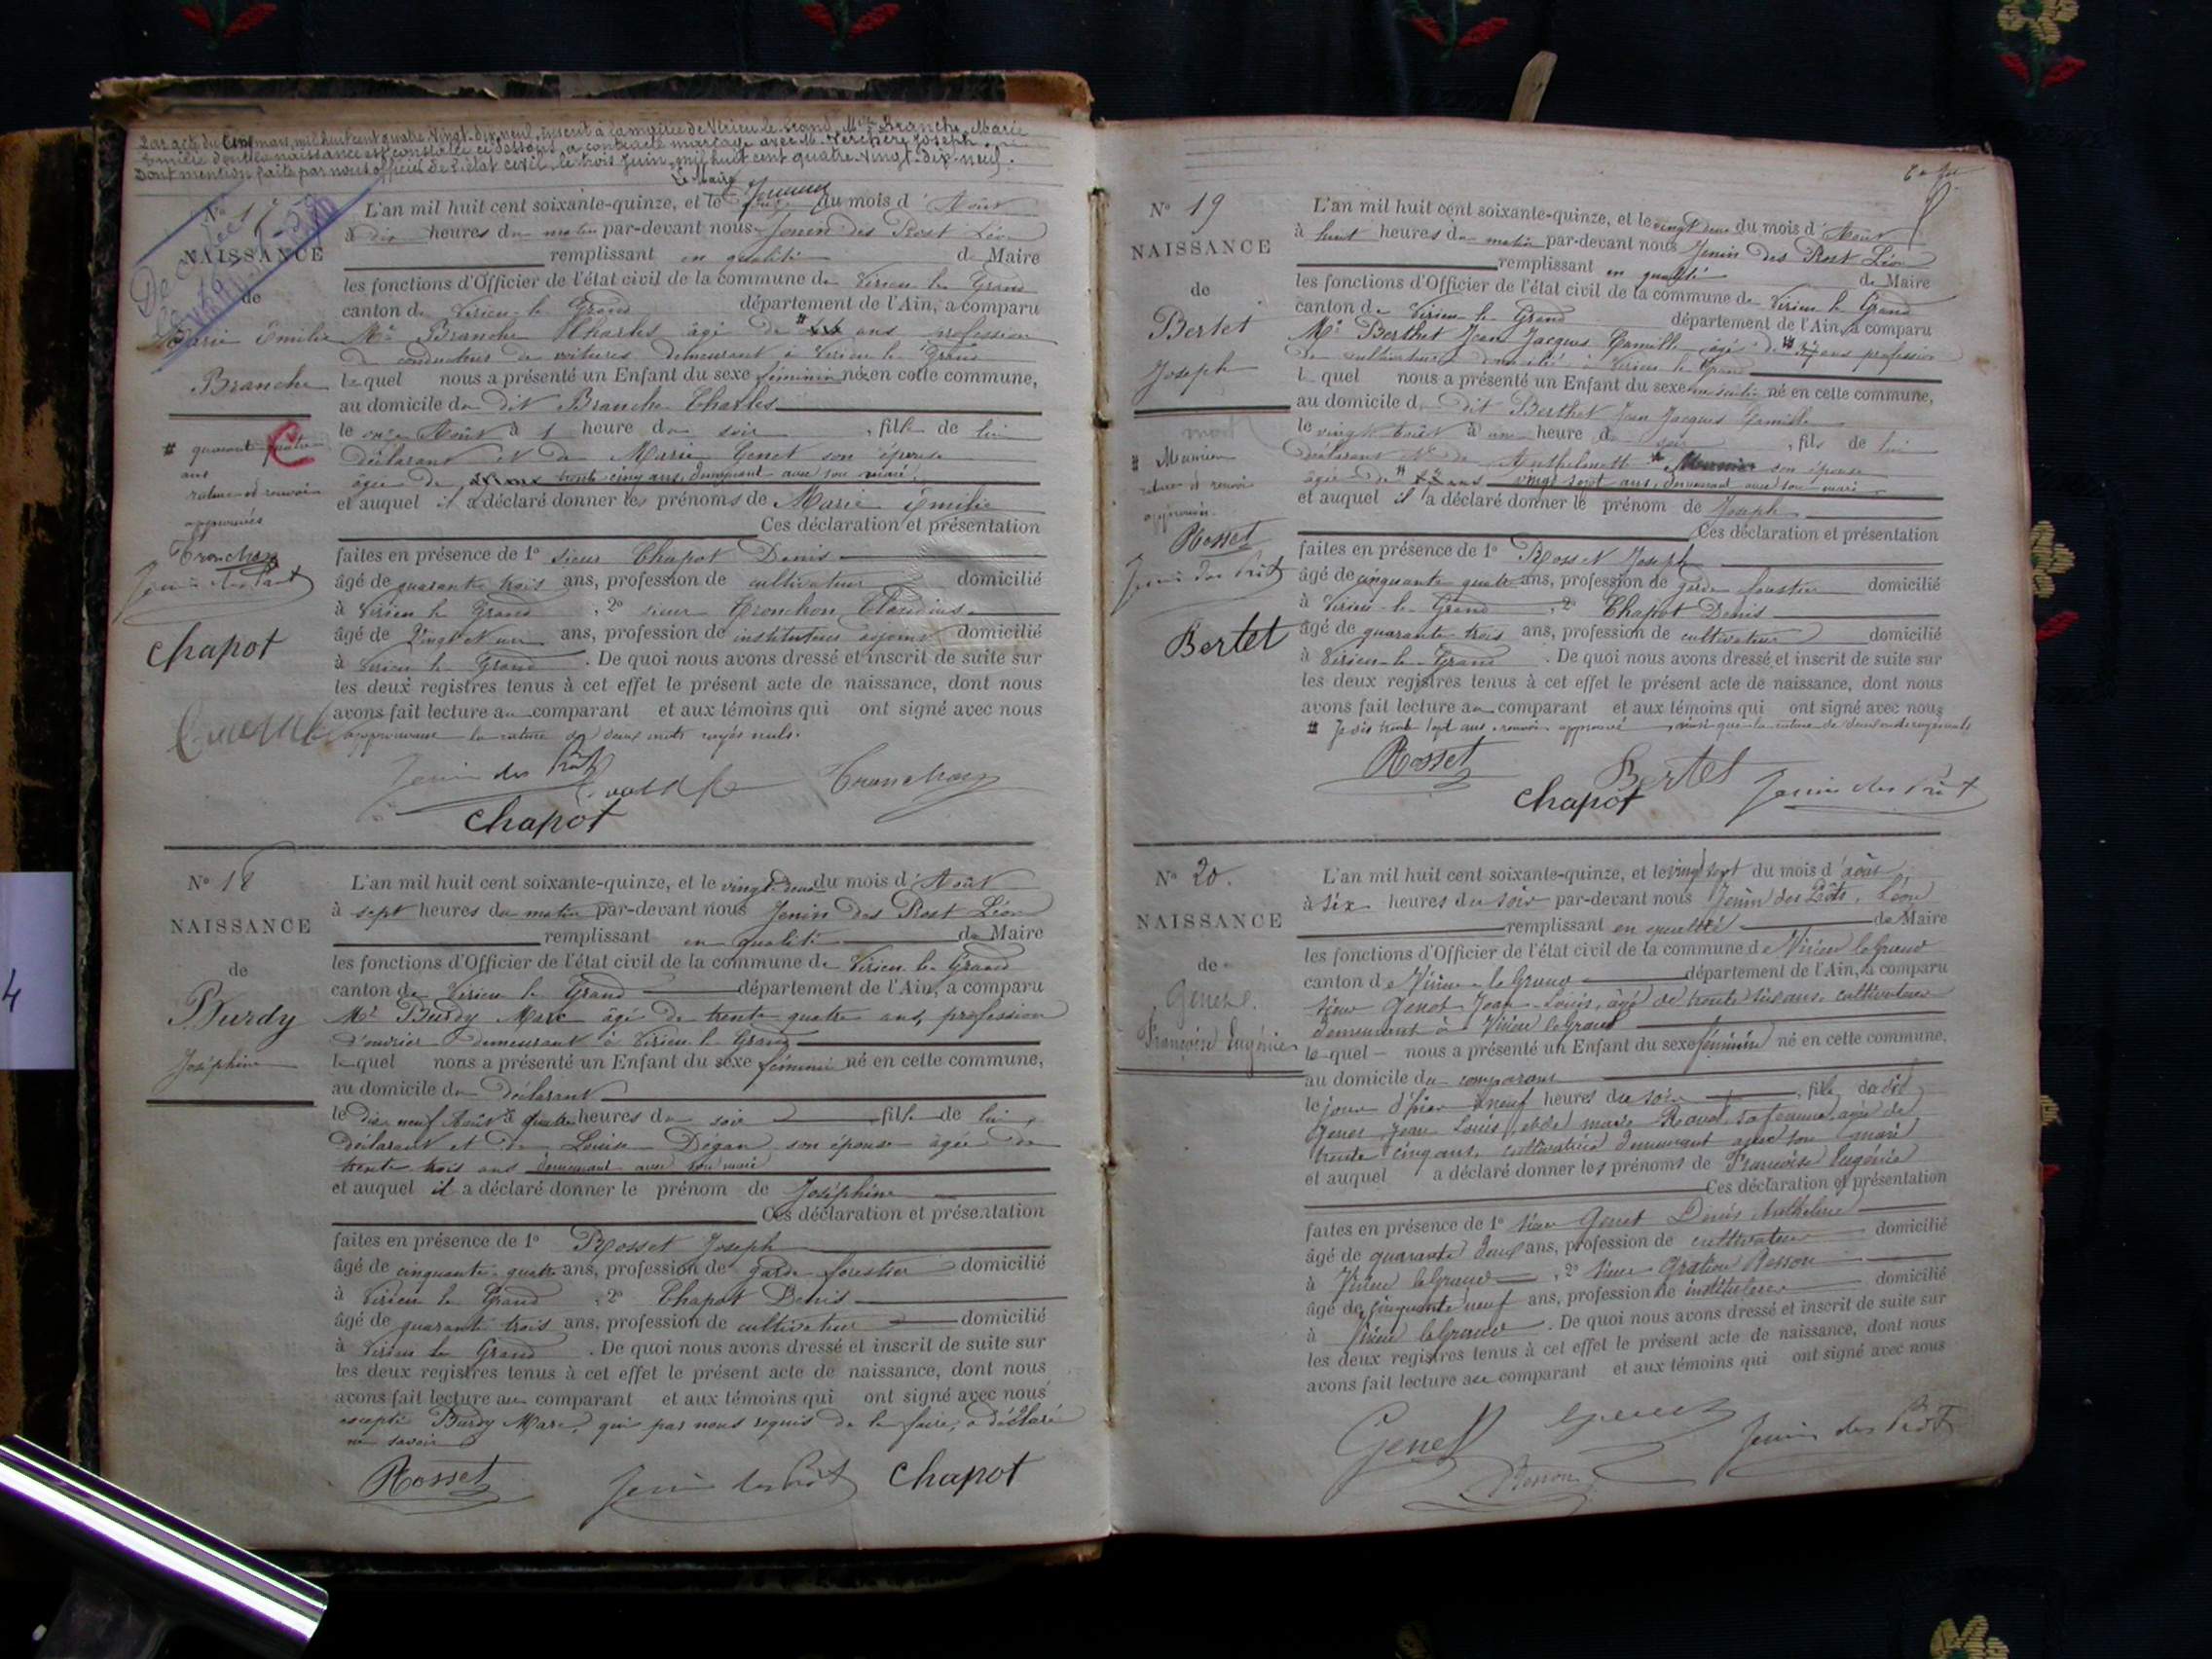 Par acte du cinq mars mil huit cent quatre vingt-dix neuf, inscrit à la mairie de Virieu le Grand, Mlle Branche Marie
Emilie dont la naissance est constatée ci dessous, a contracté mariage avec M. Verchère Joseph.
Dont mention faite par nous officier de l'état civil le trois Juin mil huit cent quatre vingt-dix-neuf.
Le Maire
N° 17
NAISSANCE
de
Marie Emilie
Branche
# quarante quatre
ans
rature et renvoi
approuvés
Tronchon
Jenin des Prôt
Chapot
L'an mil huit cent soixante-quinze, et le du mois d'Août
à dix heures du matin par-devant nous Jenin des Prost Léon
remplissant en qualité de Maire
les fonctions d'Officier de l'état civil de la commune de Virieu le Grand
canton de Virieu le Grand département de l'Ain, a comparu
Mr Branche Charles âgé de # ans profession
de conducteur de voitures demeurant à Virieu le Grand
lequel nous a présenté un Enfant du sexe féminin né en cette commune,
au domicile du dit Branche Charles
le onze Août à 1 heure du soir, fille de lui
déclarant et de Marie Genet son épouse
âgée de trente cinq ans, demeurant avec son mari.
et auquel il a déclaré donner les prénoms de Marie Emilie
Ces déclaration et présentation
faites en présence de 1° sieur Chapot Denis
âgé de quarante trois ans, profession de cultivateur domicilié
à Virieu le Grand, 2° sieur Tronchon Claudius
âgé de Vingt et un ans, profession de instituteur adjoint domicilié
à Virieu le Grand. De quoi nous avons dressé et inscrit de suite sur
les deux registres tenus à cet effet le présent acte de naissance, dont nous
avons fait lecture au comparant et aux témoins qui ont signé avec nous
approuvant la rature de deux mots rayés nuls.
Jenin des Prôt
Tronchon
Chapot
N° 18
NAISSANCE
de
Burdy
Joséphine
L'an mil huit cent soixante-quinze, et le vingt deux du mois d'Août
à sept heures du matin par-devant nous Jenin des Prost Léon
remplissant en qualité de Maire
les fonctions d'Officier de l'état civil de la commune de Virieu le Grand
canton de Virieu le Grand département de l'Ain, a comparu
Mr Burdy Marc âgé de trente quatre ans, profession
d'ouvrier demeurant à Virieu le Grand
lequel nous a présenté un Enfant du sexe féminin né en cette commune,
au domicile du déclarant
le dix neuf Août à quatre heures du soir, fille de lui,
déclarant et de Louise Dégan son épouse âgée de
trente trois ans demeurant avec son mari
et auquel il a déclaré donner le prénom de Joséphine
Ces déclaration et présentation
faites en présence de 1° Rosset Joseph
âgé de cinquante quatre ans, profession de garde forestier domicilié
à Virieu le Grand, 2° Chapot Denis
âgé de quarante trois ans, profession de cultivateur domicilié
à Virieu le Grand. De quoi nous avons dressé et inscrit de suite sur
les deux registres tenus à cet effet le présent acte de naissance, dont nous
avons fait lecture au comparant et aux témoins qui ont signé avec nous
excepté Burdy Marc, qui par nous requis de le faire, a déclaré
ne savoir
Rosset
Jenin des Prôt
Chapot
4
N° 19
NAISSANCE
de
Bertet
Joseph
# Meunier
rature et renvoi
approuvés.
Rosset
Jenin des Prôt
Bertet
L'an mil huit cent soixante-quinze, et le vingt deux du mois d'Août
à huit heures du matin par-devant nous Jenin des Prost Léon
remplissant en qualité de Maire
les fonctions d'Officier de l'état civil de la commune de Virieu le Grand
canton de Virieu le Grand département de l'Ain, a comparu
Mr Berthet Jean Jacques Camille âgé de # ans profession
de cultivateur domicilié à Virieu le Grand
lequel nous a présenté un Enfant du sexe masculin né en cette commune,
au domicile du dit Berthet Jean Jacques Camille
le vingt Août à une heure du soir, fils de lui
déclarant et de Anthelmette son épouse
âgée de # ans vingt sept ans, demeurant avec son mari
et auquel il a déclaré donner le prénom de Joseph
Ces déclaration et présentation
faites en présence de 1° Rosset Joseph
âgé de cinquante quatre ans, profession de garde forestier domicilié
à Virieu le Grand, 2° Chapot Denis
âgé de quarante trois ans, profession de cultivateur domicilié
à Virieu le Grand. De quoi nous avons dressé et inscrit de suite sur
les deux registres tenus à cet effet le présent acte de naissance, dont nous
avons fait lecture au comparant et aux témoins qui ont signé avec nous
# Je dis trente sept ans renvoi approuvé ainsi que la rature de deux mots rayés nuls
Rosset
Bertet
Chapot
Jenin des Prôt
N° 20.
NAISSANCE
de
Genet
Françoise Eugénie
L'an mil huit cent soixante-quinze, et le vingt sept du mois d'août
à six heures du soir par-devant nous Jenin des Prôts, Léon
remplissant en qualité de Maire
les fonctions d'Officier de l'état civil de la commune de Virieu le Grand
canton de Virieu le Grand département de l'Ain, a comparu
sieur Genet Jean Louis, âgé de trente six ans, cultivateur
demeurant à Virieu le Grand
lequel nous a présenté un Enfant du sexe féminin né en cette commune,
au domicile du comparant
le jour d'hier à neuf heures du soir, fille du dit
Genet Jean Louis, et de Marie Ravet sa femme, âgée de
trente cinq ans, cultivatrice demeurant avec son mari
et auquel a déclaré donner les prénoms de Françoise Eugénie
Ces déclaration et présentation
faites en présence de 1° sieur Genet Denis Anthelme
âgé de quarante deux ans, profession de cultivateur domicilié
à Virieu le Grand, 2° sieur Gratien Besson
âgé de cinquante neuf ans, profession de instituteur domicilié
à Virieu le Grand. De quoi nous avons dressé et inscrit de suite sur
les deux registres tenus à cet effet le présent acte de naissance, dont nous
avons fait lecture au comparant et aux témoins qui ont signé avec nous
Genet
Genet
Jenin des Prôt
Besson